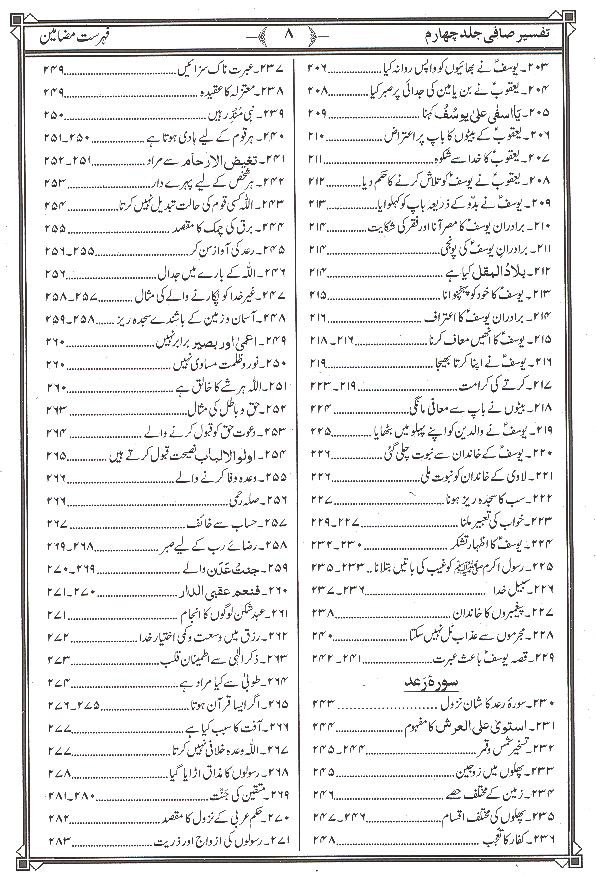 تفسیر صافی جلد چہارم
۸
فہرست مضامین
۲۰۳۔ یوسفؑ نے بھائیوں کو واپس روانہ کیا ۲۰۶
۲۰۴۔ یعقوبؑ نے بن یامین کی جدائی پر صبر کیا ۲۰۸
۲۰۵۔ یااسفٰی علیٰ یوسُف کہنا ۲۰۹
۲۰۶۔ یعقوبؑ کے بیٹوں کا باپ پر اعتراض ۲۱۰
۲۰۷۔ یعقوبؑ کا خدا سے شکوہ ۲۱۱
۲۰۸۔ یعقوبؑ نے یوسفؑ کو تلاش کرنے کا حکم دیا ۲۱۲
۲۰۹۔ یوسفؑ نے بدّو کے ذریعہ باپ کو کہلوایا ۲۱۳
۲۱۰۔ برادران یوسفؑ کا مصر آنا اور فقر کی شکایت ۲۱۴
۲۱۱۔ برادران یوسفؑ کی پونجی ۲۱۴
۲۱۲۔ بلاد المقل کیا ہے ۲۱۴
۲۱۳۔ یوسفؑ کا خود کو پہنچوانا ۲۱۵
۲۱۴۔ برادران یوسفؑ کا اعتراف ۲۱۶
۲۱۵۔ یوسفؑ کا انھیں معاف کرنا ۲۱۶۔۲۱۸
۲۱۶۔ یوسفؑ نے اپنا کرتا بھیجا ۲۱۹
۲۱۷۔ کرتے کی کرامت ۲۱۹۔۲۲۳
۲۱۸۔ بیٹوں نے باپ سے معافی مانگی ۲۲۴
۲۱۹۔ یوسفؑ نے والدین کو اپنے پہلو میں بٹھایا ۲۲۵
۲۲۰۔ یوسفؑ کے خاندان سے نبوت چلی گئی ۲۲۶
۲۲۱۔ لاوی کے خاندان کو نبوت ملی ۲۲۶
۲۲۲۔ سب کا سجدہ ریز ہونا ۲۲۷
۲۲۳۔ خواب کی تعبیر ملنا ۲۲۷۔۲۲۹
۲۲۴۔ یوسفؑ کا اظہار تشکر ۲۳۰۔۲۳۲
۲۲۵۔ رسول اکرم ﷺ کو غیب کی باتیں بتلانا ۲۳۳۔۲۳۵
۲۲۶۔ سبیل خدا ۲۳۶۔۲۳۷
۲۲۷۔ پیغمبروں کا خاندان ۲۳۸
۲۲۸۔ مجرموں سے عذاب ٹل نہیں سکتا ۲۴۰
۲۲۹۔ قصہ یوسفؑ باعث عبرت ۲۴۱۔۲۴۲
سورۂ رعد
۲۳۰۔ سورۂ رعد کا شان نزول ۲۴۳
۲۳۱۔ استویٰ علی العرش کا مفہوم ۲۴۴
۲۳۲۔ تسخیر شمس و قمر ۲۴۴۔۲۴۵
۲۳۳۔ پھلوں میں زوجین ۲۴۵
۲۳۴۔ زمین کے مختلف حصے ۲۴۶
۲۳۵۔ پھلوں کی مختلف اقسام ۲۴۶۔۲۴۷
۲۳۶۔ کفار کا تعجب ۲۴۸
۲۳۷۔ عبرت ناک سزائیں ۲۴۹
۲۳۸۔ معتزلہ کا عقیدہ ۲۴۹
۲۳۹۔ نبی مُنذِر ہیں ۲۵۰
۲۴۰۔ ہر قوم کے لیے ہادی ہوتا ہے ۲۵۰۔۲۵۱
۲۴۱۔ تغیض الارحام سے مراد ۲۵۱۔۲۵۲
۲۴۲۔ ہر شخص کے لیے پہرے دار ۲۵۳
۲۴۳۔ اللہ کسی قوم کی حالت تبدیل نہیں کرتا ۲۵۴
۲۴۴۔ برق کی چمک کا مقصد ۲۵۵
۲۴۵۔ رعد کی آواز سن کر ۲۵۵۔۲۵۶
۲۴۶۔ اللہ کے بارے میں جدال ۲۵۶
۲۴۷۔ غیر خدا کو پکارنے والے کی مثال ۲۵۷۔۲۵۸
۲۴۸۔ آسمان و زمین کے باشندے سجدہ ریز ۲۵۸۔۲۵۹
۲۴۹۔ اعمیٰ اور بصیر برابر نہیں ۲۶۰
۲۵۰۔ نور و ظلمت مساوی نہیں ۲۶۰
۲۵۱۔ اللہ ہر شے کا خالق ہے ۲۶۰
۲۵۲۔ حق و باطل کی مثال ۲۶۳
۲۵۳۔ دعوت حق کو قبول کرنے والے ۲۶۴
۲۵۴۔ اولو الالباب نصیحت قبول کرتے ہیں ۲۶۵
۲۵۵۔ وعدہ وفا کرنے والے ۲۶۶
۲۵۶۔ صلہ رحمی ۲۶۶
۲۵۷۔ حساب سے خائف ۲۶۷
۲۵۸۔ رضائے رب کے لیے صبر ۲۶۸۔۲۶۹
۲۵۹۔ جنت عدن والے ۲۶۹۔۲۷۰
۲۶۰۔ فنعم عقبی الدار ۲۷۰۔۲۷۱
۲۶۱۔ عہد شکن لوگوں کا انجام ۲۷۱
۲۶۲۔ رزق میں وسعت و کمی اختیار خدا ۲۷۲
۲۶۳۔ ذکر الٰہی سے اطمینان قلب ۲۷۳
۲۶۴۔ طوبیٰ سے کیا مراد ہے ۲۷۴
۲۶۵۔ اگر ایسا قرآن ہوتا ۲۷۵۔۲۷۶
۲۶۶۔ آفت کا سبب کیا ہے ۲۷۷
۲۶۷۔ اللہ وعدہ خلافی نہیں کرتا ۲۷۷
۲۶۸۔ رسولوں کا مذاق اڑایا گیا ۲۷۸
۲۶۹۔ متقین کی جنّت ۲۸۰۔۲۸۱
۲۷۰۔ حکم عربی کے نزول کا مقصد ۲۸۲
۲۷۱۔ رسولوں کی ازواج اور ذریت ۲۸۳